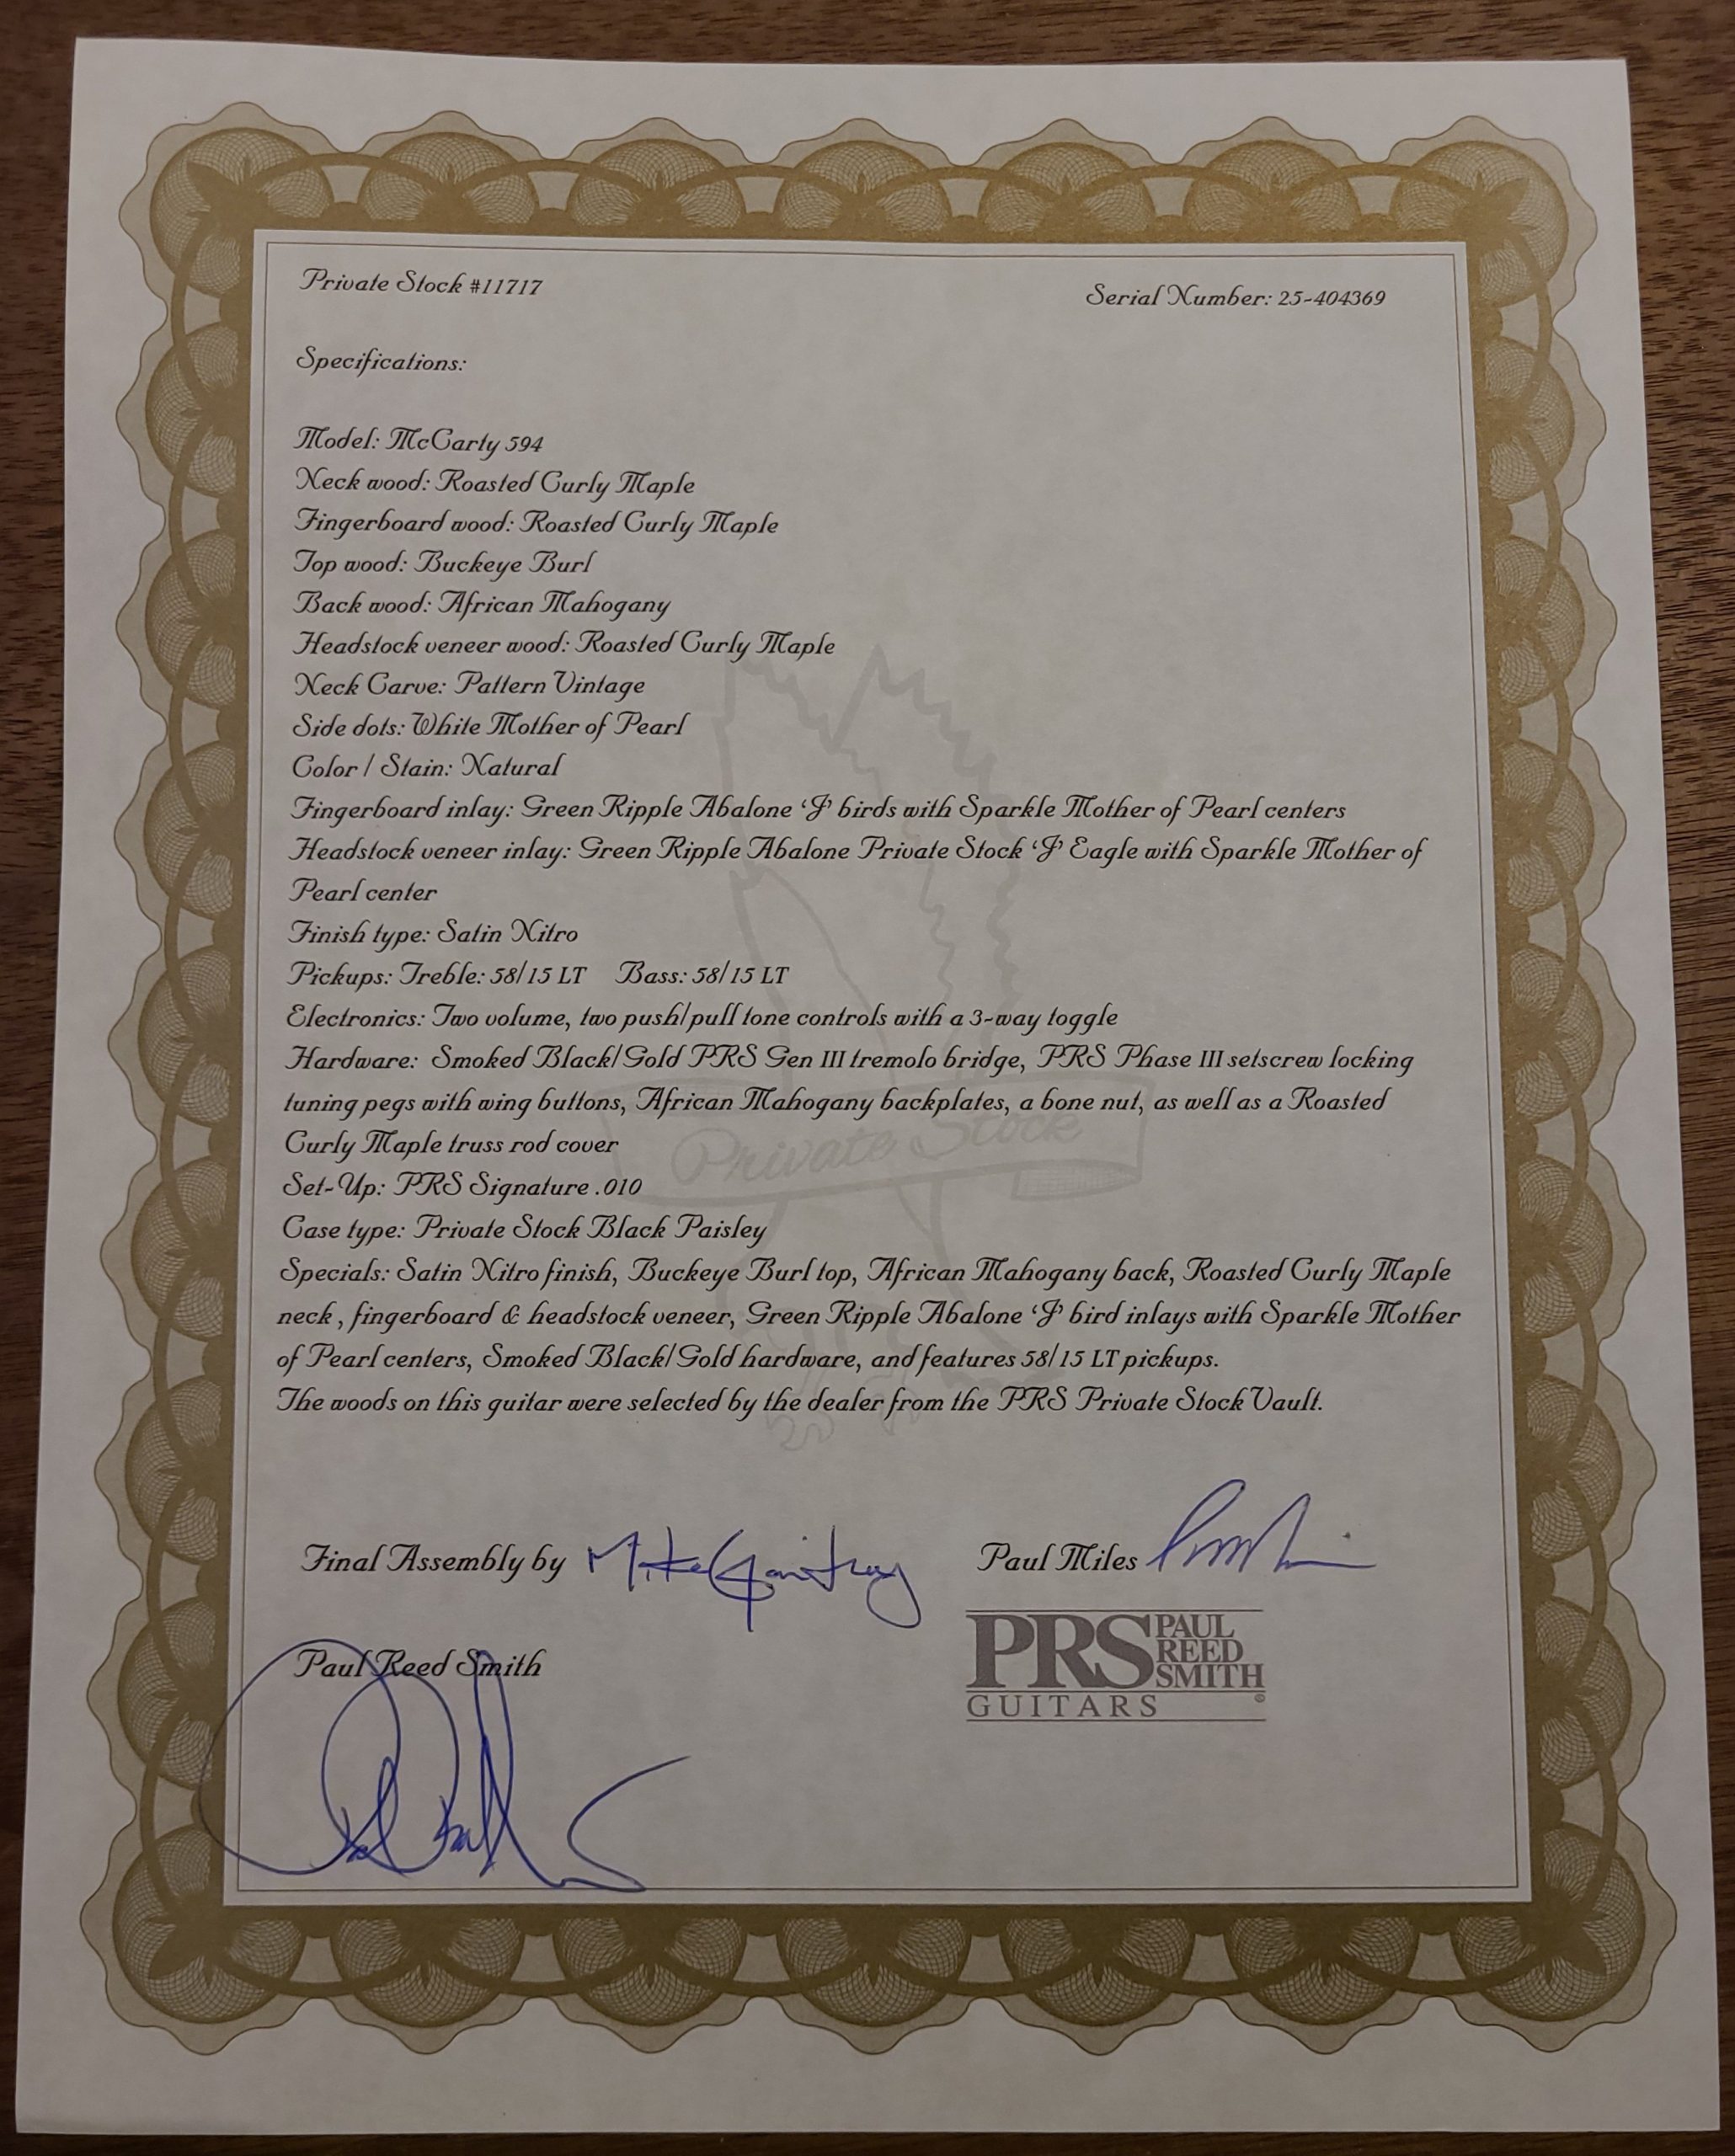 Private Stock #11717
Serial Number: 25-404369
Specifications:
Model: McCarty 594
Neck wood: Roasted Curly Maple
Fingerboard wood: Roasted Curly Maple
Top wood: Buckeye Burl
Back wood: African Mahogany
Headstock veneer wood: Roasted Curly Maple
Neck Carve: Pattern Vintage
Side dots: White Mother of Pearl
Color / Stain: Natural
Fingerboard inlay: Green Ripple Abalone ‘J’ birds with Sparkle Mother of Pearl centers
Headstock veneer inlay: Green Ripple Abalone Private Stock ‘J’ Eagle with Sparkle Mother of
Pearl center
Finish type: Satin Nitro
Pickups: Treble: 58/15 LT Bass: 58/15 LT
Electronics: Two volume, two push/pull tone controls with a 3-way toggle
Hardware: Smoked Black/Gold PRS Gen III tremolo bridge, PRS Phase III setscrew locking
tuning pegs with wing buttons, African Mahogany backplates, a bone nut, as well as a Roasted
Curly Maple truss rod cover
Private Stock
Set-Up: PRS Signature .010
Case type: Private Stock Black Paisley
Specials: Satin Nitro finish, Buckeye Burl top, African Mahogany back, Roasted Curly Maple
neck , fingerboard & headstock veneer, Green Ripple Abalone ‘J’ bird inlays with Sparkle Mother
of Pearl centers, Smoked Black/Gold hardware, and features 58/15 LT pickups.
The woods on this guitar were selected by the dealer from the PRS Private Stock Vault.
Final Assembly by Mike
Paul Miles
Paul Reed Smith
PRS PAUL
REED
SMITH
GUITARS ©